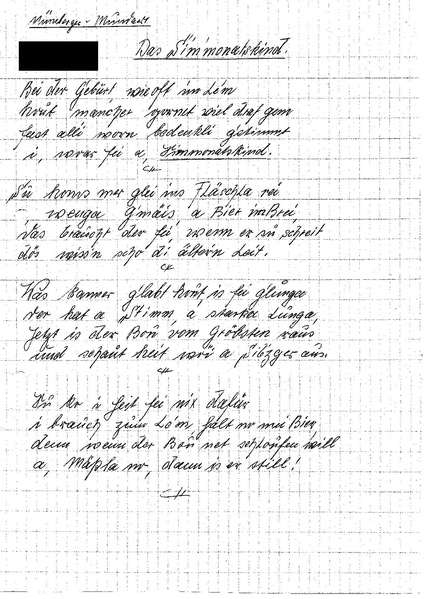 Nürnberger-Mundart
Das Simmonatskind.
Bei der Geburt wie oft im Lém
hout mancher gornet viel draf gem
fast alli worn bedenkli gstimmt
i, war fei a, Simmonatskind.
Dú homs mer glei ins Fläschla nei
wenga Gmäis, a Bier in Brei,
das braucht der fei wenn er sú schreit
dös wissn scho di ältern Leit.
Was kanner glabt hout, is fei glunga
der hat a Stimm, a starka Lunga,
Jetzt is der Bou, vom Gröbsten raus
und schaut heit wöi a Sibzger aus.
Dú ko i heit fei nix dafür
i brauch zum Lém, halt nr mei Bier,
denn wenn der Bou net schloufen will
a, Mäßla nr, dann is er still!